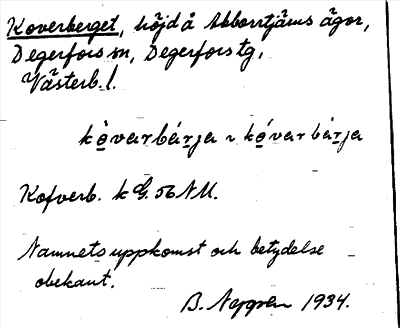 Koverberget, höjd å Abborrtjärns ägor,
Degerfors sn, Degerfors tg,
Västerb. l.
kọ̀varbárja ~ kọ́varbàrja
Kofverb. k G. 56 NU.
Namnets uppkomst och betydelse
obekant.
B. 1934.